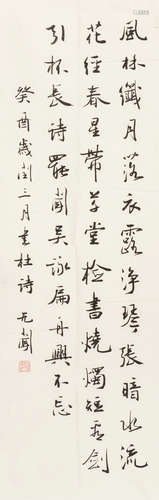 風林纖月落衣露淨琴張暗水流
花徑春星帶草堂檢書燒燭短看劍
引杯長詩罷聞吳詠扁舟興不忘
癸酉歲閏三月書杜詩